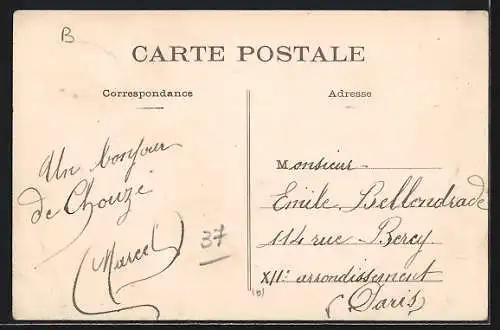 B
CARTE POSTALE
Correspondance
Adresse
Un bonjour
de Chouzé
Marcel
37
Monsieur
Emile Bellondrade
114 rue Bercy
XIIe arrondissement
(Paris)
(B)